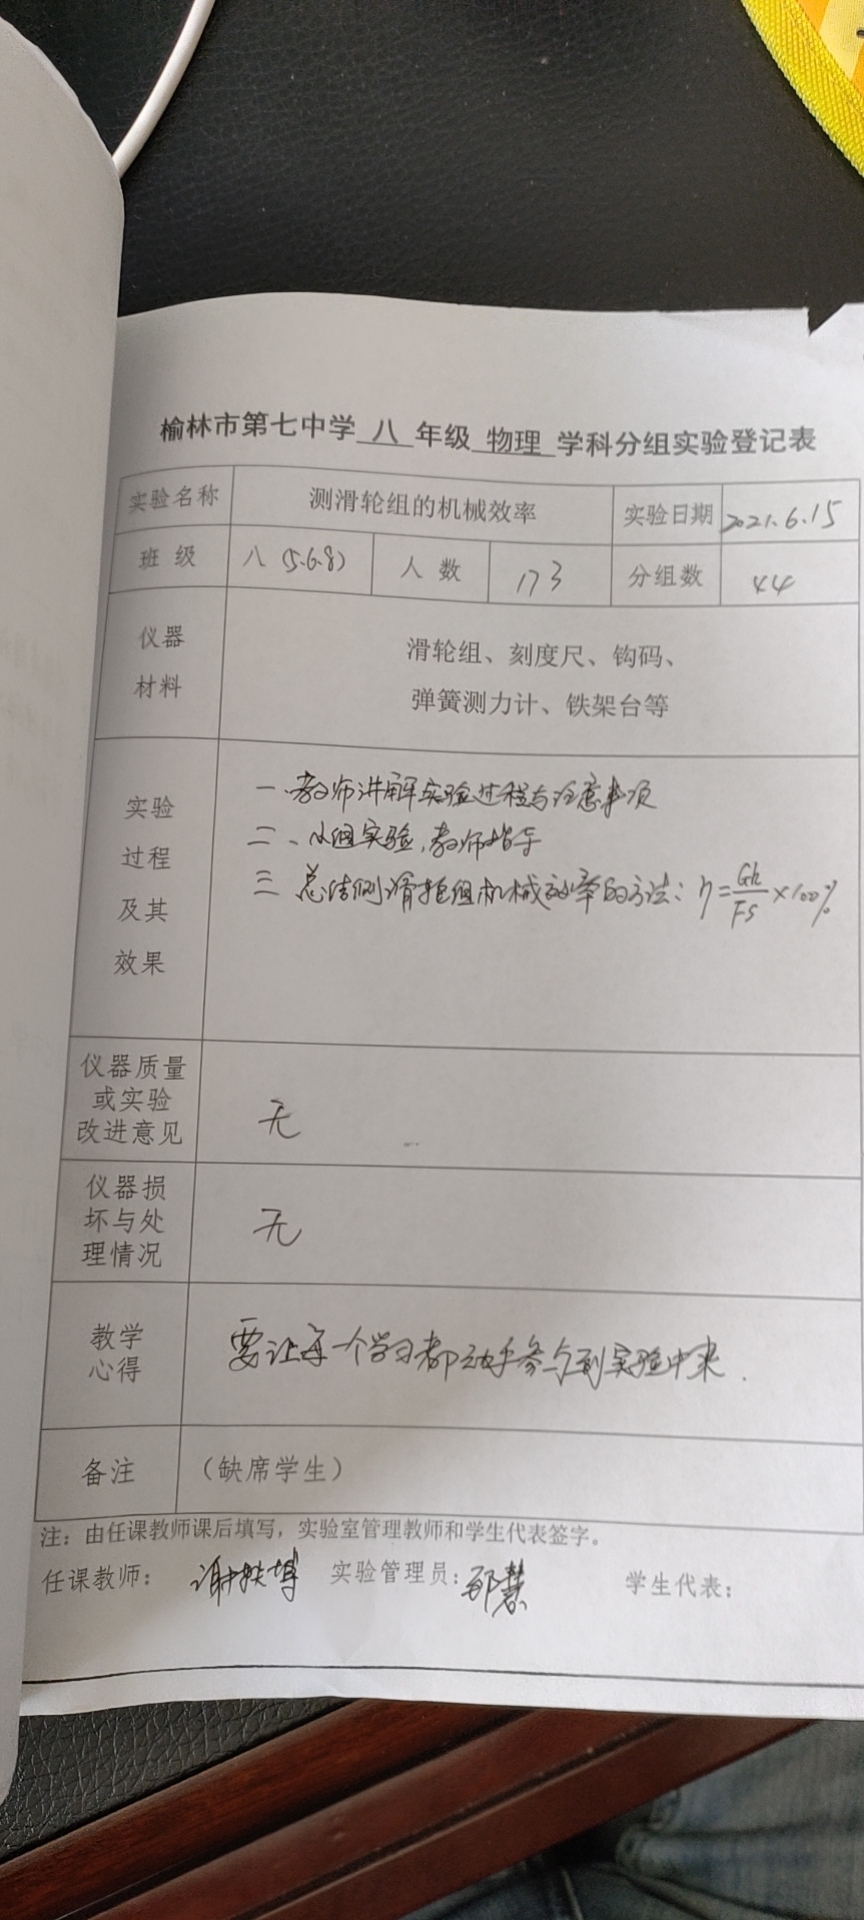 榆林市第七中学 八 年级 物理 学科分组实验登记表
实验名称 测滑轮组的机械效率 实验日期 2021.6.15
班 级 八(5.6.8) 人 数 173 分组数 44
仪器
材料
滑轮组、刻度尺、钩码、
弹簧测力计、铁架台等
实验
过程
及其
效果
一、教师讲解实验过程与注意事项
二、小组实验,教师指导
三 总结测滑轮组机械效率的方法: η=Gh/Fs×100%
仪器质量
或实验
改进意见
无
仪器损
坏与处
理情况
无
教学
心得
要让每一个学习都动手参与到实验中来.
备注 (缺席学生)
注:由任课教师课后填写,实验室管理教师和学生代表签字。
任课教师: 谢 实验管理员: 慧 学生代表: